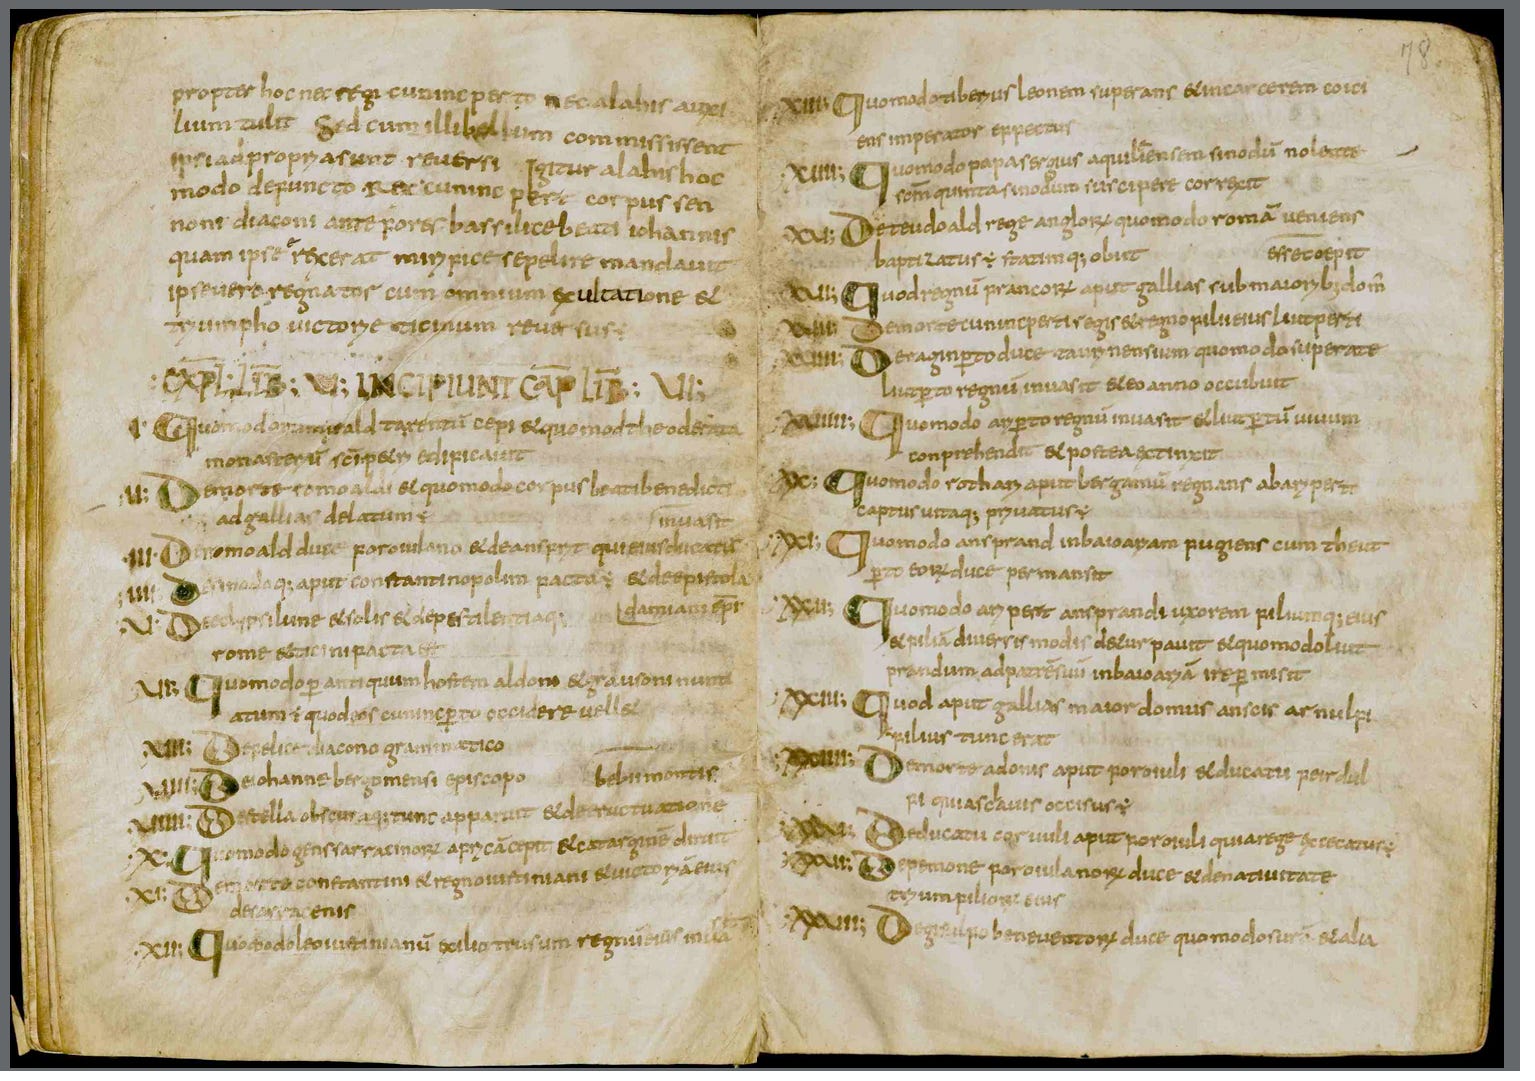 propter hoc nec regi cunincperto nec alahis auxi
lium tulit Sed cum illi bellum commisissent
ipsi ad propria sunt reversi Igitur alahis hoc
modo defuncto Rex cunincpert corpus sen
noni diaconi ante fores bassilice beati iohannis
quam ipse rexerat mirifice sepelire mandavit
ipse vero regnator cum omnium excultatione &
tryumpho victorie ticinum reversus
EXPL LIB VI INCIPIUNT CAP LIB VI
I Quomodo rumuald tarentu cepi & quomod theoderata
monasteriu sci petri edificavit
II De morte romoaldi & quomodo corpus beati benedicti
ad gallias delatum
invasit
III De romoald duce foroiulano & de ansfrit qui eius ducatu
IIII De sinodaq; aput constantinopolim facta & de epistola
damiani epi
V De eclypsi lune & solis & de pestilentiaq;
rome & ticini facta est
VI Quomodo p antiquum hostem aldoni & grausoni nunti
atum quod eos cunincpto occidere vell&
VII De felice diacono grammatico
VIII De iohanne bergomensi episcopo
bebii montis
VIIII De stella obscuraq; tunc apparuit & de ructuatione
X Quomodo gens sarracinor africa cepit & cartagine diruit
XI De morte constantini & regno iustiniani & victoria eius
de sarracenis
XII Quomodo leo iustinianu exilio trusum regnu eius invasit
78
XIII Quomodo tiberius leonem superans & in carcerem coici
ens imperator effectus
XIIII Quomodo papa sergius aquiliensem sinodu nolente
scm quinta sinodum suscipere correxit
XV De teudoald rege anglor quomodo roma veniens
baptizatus statimq; obiit
esse cepit
XVI Quod regnu francor aput gallias sub maiorib; dom
XVII De morte cunincperti regis & regno filii eius liutperti
XVIII De raginpto duce taurinensium quomodo superate
liutpto regnu invasit & eo anno occubuit
XVIIII Quomodo aripto regnu invasit & liutptu vivum
conprehendit & postea extinxit
XX Quomodo rothari aput bergamu regnans ab aripert
captus vitaq; privatus
XXI Quomodo ansprand in baioariam fugiens cum theut
pto eor duce permansit
XXII Quomodo aripert ansprandi uxorem filiumq; eius
& filia diversis modis deturpavit & quomodo liut
prandum ad patre suu in baioaria ire pmisit
XXIII Quod aput gallias maior domus anscis arnulfi
filius tunc erat
XXIIII De morte adonis aput foroiuli & ducatu ferdul
fi qui a sclavis occisus
De ducatu corvuli aput foroiuli qui a rege excecatus
De pemone foroiulanor duce & de nativitate
trium filior eius
De gisulfo beneventor duce quomodo sura & alia